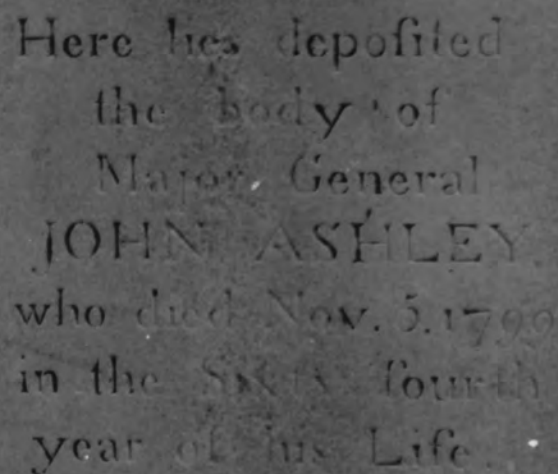 Here lies depoſited
the body of
Major General
JOHN ASHLEY
who died Nov. 5. 1799
in the Sixty fourth
year of his Life